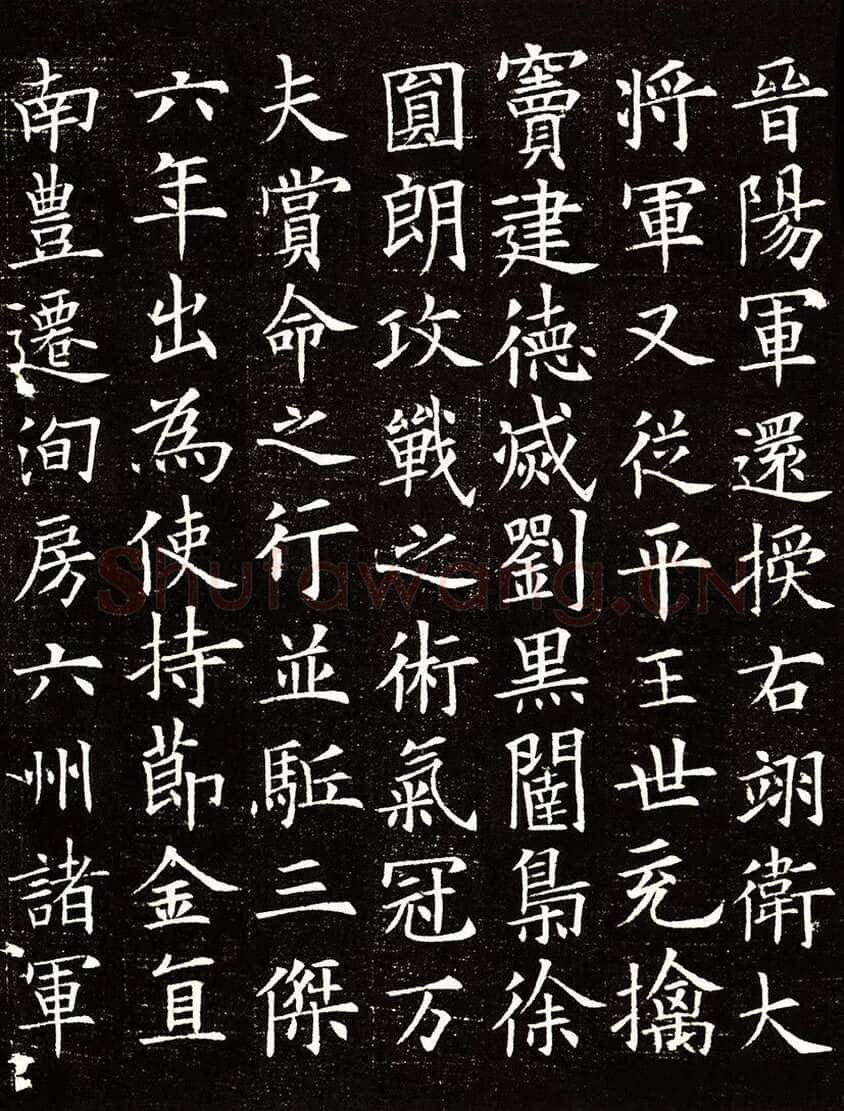 晉陽軍還授右翊衛大
将軍又従平王世充擒
竇建徳滅劉黒闥梟徐
圓朗攻戰之術氣冠万
夫賞命之行並駈三傑
六年出為使持節金直
南豊遷洵房六州諸軍
Shufawang.CN